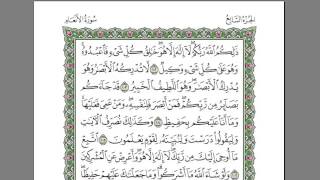 سُورَةُ الأَنْعَامِ الجُزْءُ السَّابِعُ
ذَٰلِكُمُ ٱللَّهُ رَبُّكُمْ لَآ إِلَٰهَ إِلَّا هُوَ خَٰلِقُ كُلِّ شَىْءٍ فَٱعْبُدُوهُ
وَهُوَ عَلَىٰ كُلِّ شَىْءٍ وَكِيلٌ ١٠٢ لَّا تُدْرِكُهُ ٱلْأَبْصَٰرُ وَهُوَ
يُدْرِكُ ٱلْأَبْصَٰرَ وَهُوَ ٱللَّطِيفُ ٱلْخَبِيرُ ١٠٣ قَدْ جَآءَكُم
بَصَآئِرُ مِن رَّبِّكُمْ فَمَنْ أَبْصَرَ فَلِنَفْسِهِۦ وَمَنْ عَمِىَ فَعَلَيْهَا
وَمَآ أَنَا۠ عَلَيْكُم بِحَفِيظٍ ١٠٤ وَكَذَٰلِكَ نُصَرِّفُ ٱلْءَايَٰتِ
وَلِيَقُولُوا۟ دَرَسْتَ وَلِنُبَيِّنَهُۥ لِقَوْمٍ يَعْلَمُونَ ١٠٥ ٱتَّبِعْ
مَآ أُوحِىَ إِلَيْكَ مِن رَّبِّكَ لَآ إِلَٰهَ إِلَّا هُوَ وَأَعْرِضْ عَنِ ٱلْمُشْرِكِينَ
١٠٦ وَلَوْ شَآءَ ٱللَّهُ مَآ أَشْرَكُوا۟ وَمَا جَعَلْنَٰكَ عَلَيْهِمْ حَفِيظًا